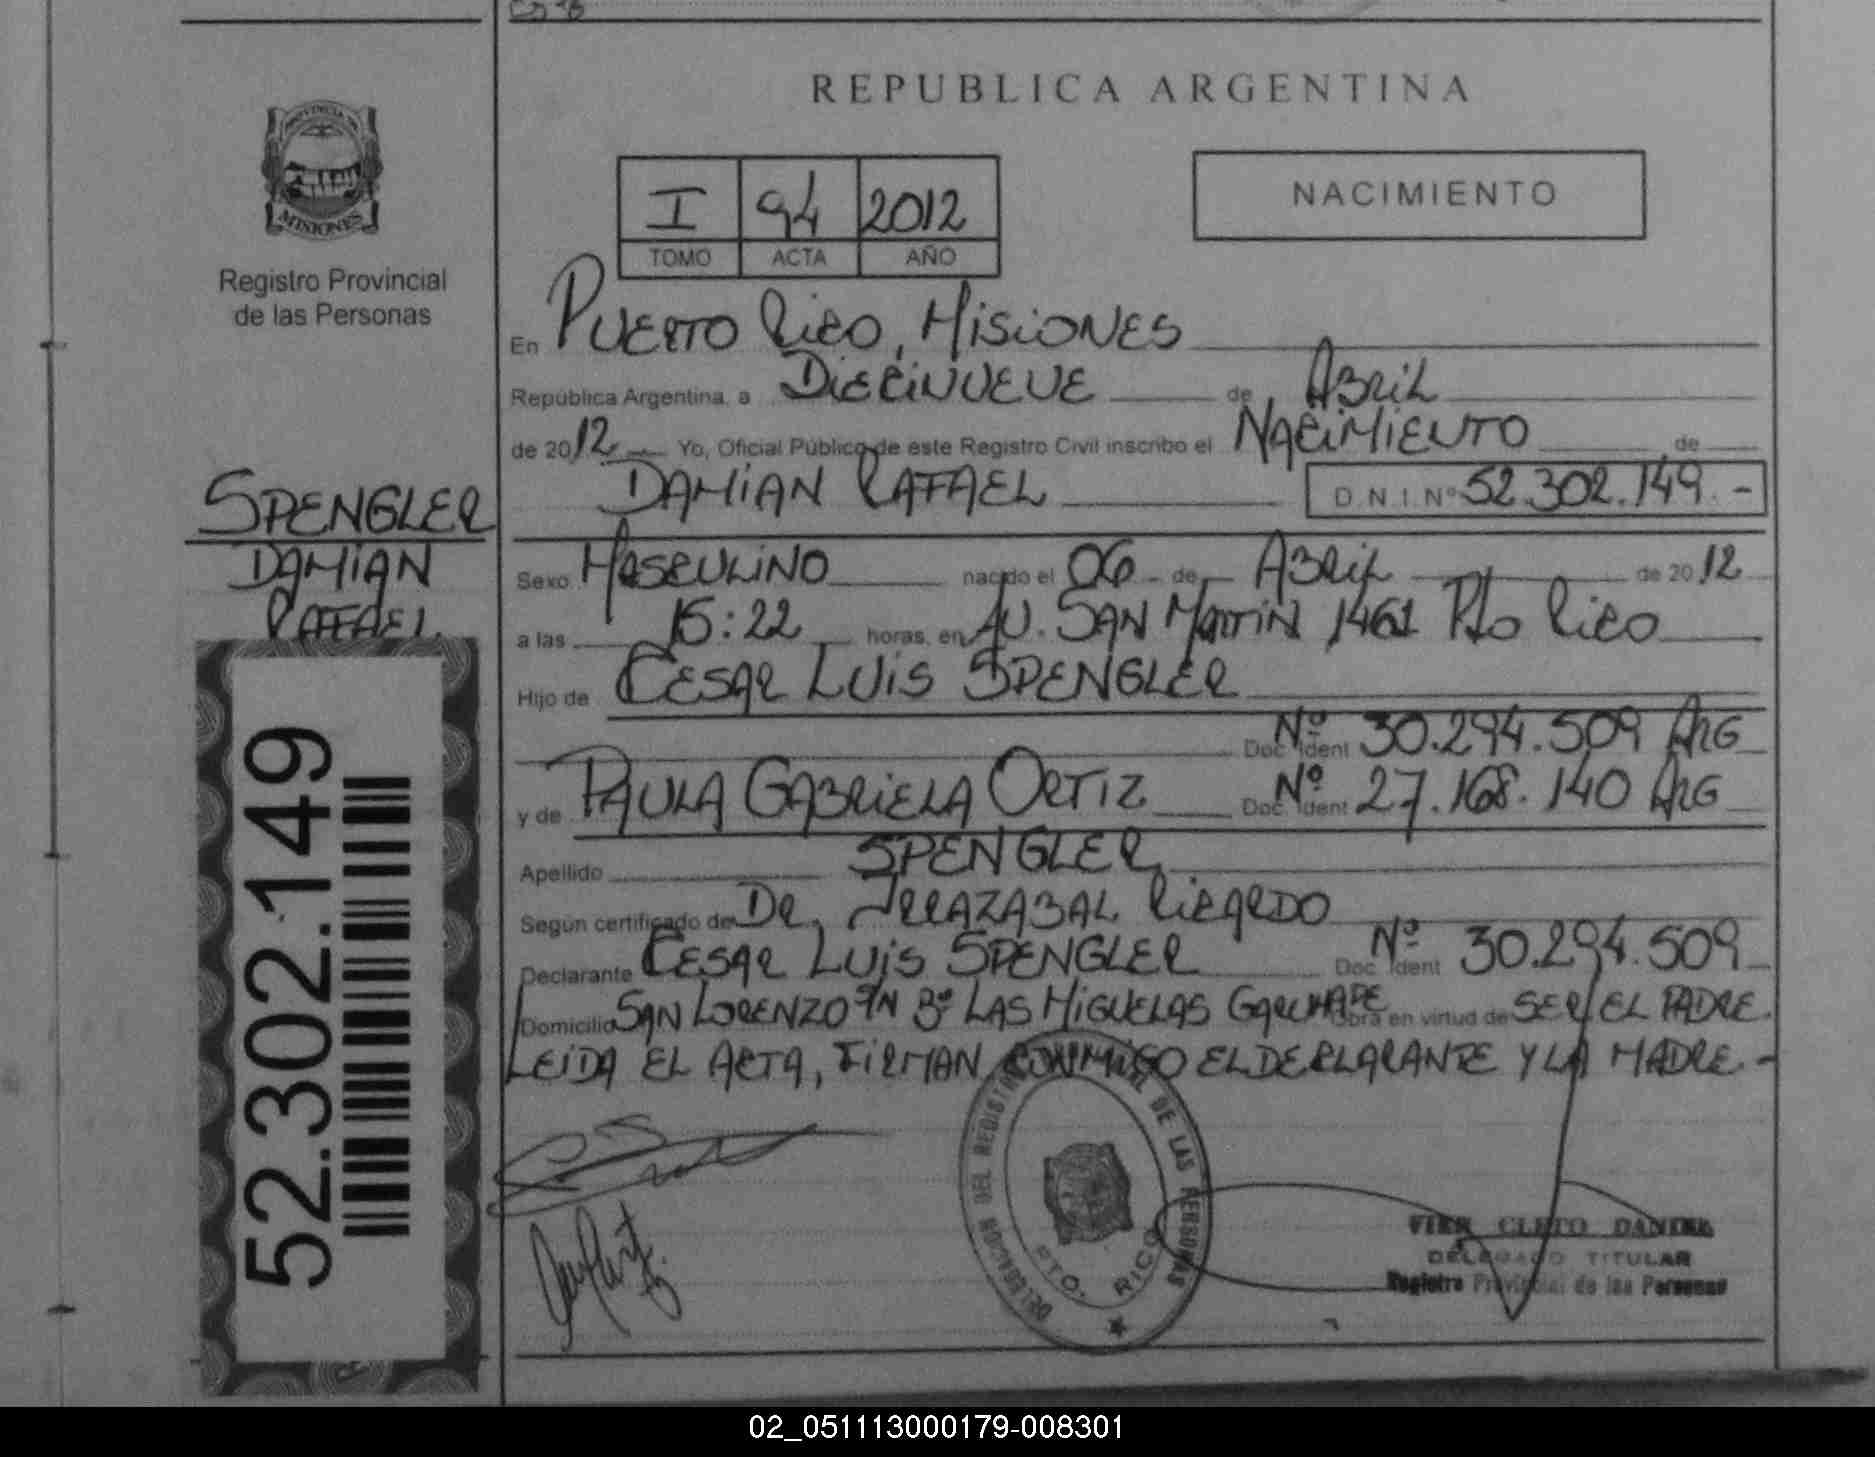 REPUBLICA ARGENTINA
PROVINCIA DE
MISIONES
Registro Provincial
de las Personas
I 94 2012
TOMO ACTA AÑO
NACIMIENTO
En PUERTO RICO, MISIONES
República Argentina, a DIECINUEVE de ABRIL
de 2012 Yo, Oficial Público de este Registro Civil inscribo el NACIMIENTO de
DAMIAN RAFAEL D.N.I. Nº 52.302.149.-
SPENGLER
DAMIAN
RAFAEL
Sexo MASCULINO nacido el 06 de ABRIL de 2012
a las 15:22 horas, en AV. SAN MARTIN 1461 PTO RICO
Hijo de CESAR LUIS SPENGLER
Doc. Ident Nº 30.294.509 ARG
y de PAULA GABRIELA ORTIZ Doc. Ident Nº 27.168.140 ARG
Apellido SPENGLER
Según certificado de DR. IRRAZABAL RICARDO
Declarante CESAR LUIS SPENGLER Doc. Ident Nº 30.294.509
Domicilio SAN LORENZO S/N Bº LAS MIGUELAS GARUHAPE Obra en virtud de SER EL PADRE.
LEIDA EL ACTA, FIRMAN CONMIGO EL DECLARANTE Y LA MADRE.-
52.302.149
DELEGACION DEL REGISTRO PROVINCIAL DE LAS PERSONAS
PTO. RICO
CLETO DANIEL
DELEGADO TITULAR
Registro Provincial de las Personas
02_051113000179-008301